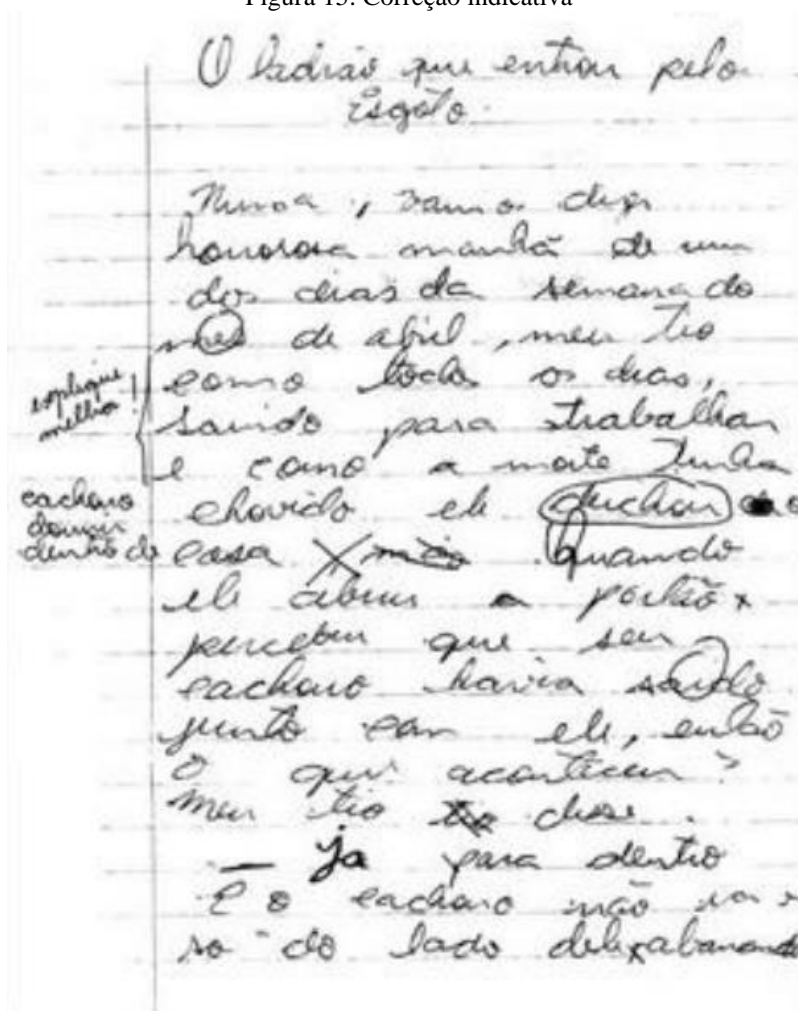 Figura 13: Correção indicativa
O ladrão que entrou pelo
Esgôto.
Numa, vamos dizer
manhã de um
dos dias da semana do
mes de abril, meu tio
como todos os dias,
saindo para trabalhar
e como a noite tinha
chovido ele duchou o
casa não Quando
ele abriu o portão
percebeu que seu
cachorro havia saido
junto com ele, então
o que aconteceu?
meu tio disse.
— ja para dentro
E o cachorro não
so do lado dele, abanando
explique
melhor!
cachorro
dormir
dentro de